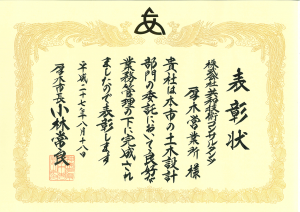 表彰状
株式会社
厚木営業所 様
貴社は本市の土木設計
部門の委託において良好な
業務管理の下に完成され
ましたので表彰します
平成二十七年八月十八日
厚木市長 小林常良